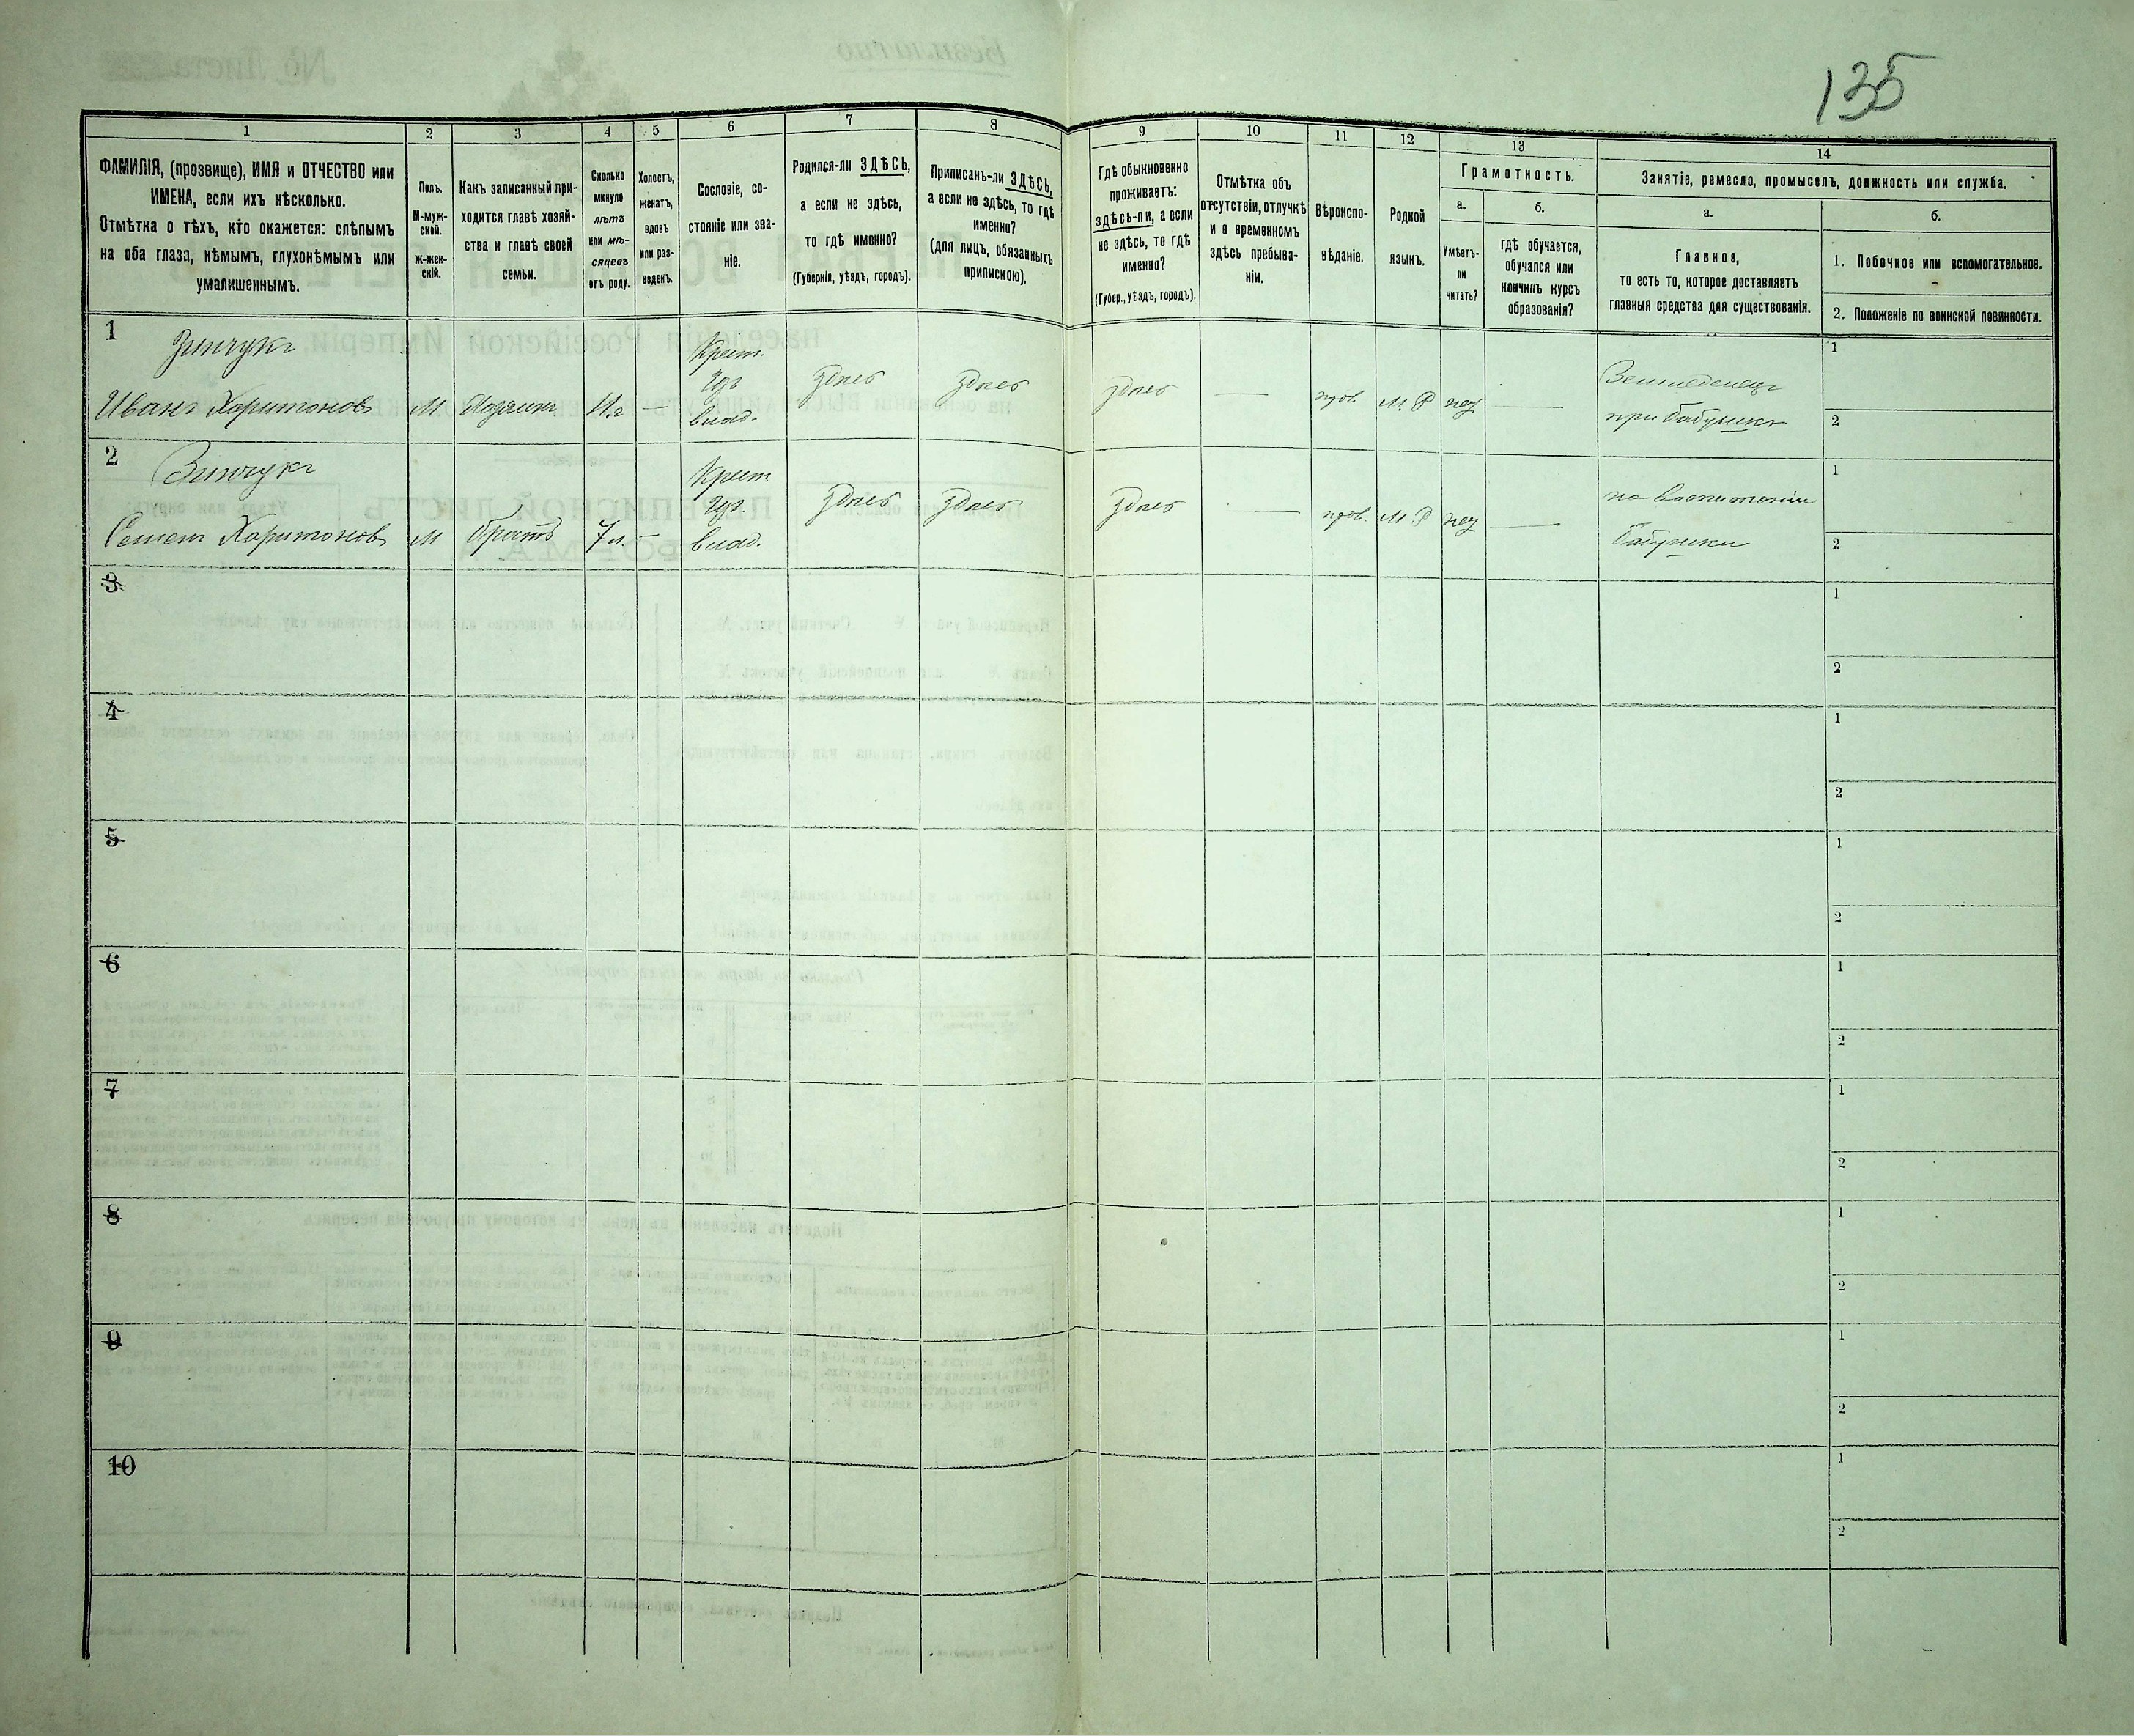 135
1
2
3
4
5
6
7
8
9
10
11
12
13
14
ФАМИЛІЯ, (прозвище), ИМЯ и ОТЧЕСТВО или
ИМЕНА, если ихъ нѣсколько.
Отмѣтка о тѣхъ, кто окажется: слѣпымъ
на оба глаза, нѣмымъ, глухонѣмымъ или
умалишеннымъ.
Полъ.
М-муж-
ской.
Ж-жен-
скій.
Какъ записанный при-
ходится главѣ хозяй-
ства и главѣ своей
семьи.
Сколько
минуло
лѣтъ
или мѣ-
сяцевъ
отъ роду.
Холостъ,
женатъ,
вдовъ
или раз-
веденъ.
Сословіе, со-
стояніе или зва-
ніе.
Родился-ли ЗДѢСЬ,
а если не здѣсь,
то гдѣ именно?
(Губернія, уѣздъ, городъ).
Приписанъ-ли ЗДѢСЬ,
а если не здѣсь, то гдѣ
именно?
(для лицъ, обязанныхъ
припискою).
Гдѣ обыкновенно
проживаетъ:
здѣсь-ли, а если
не здѣсь, то гдѣ
именно?
(Губер., уѣздъ, городъ).
Отмѣтка объ
отсутствіи, отлучкѣ
и о временномъ
здѣсь пребыва-
ніи.
Вѣроиспо-
вѣданіе.
Родной
языкъ.
Грамотность.
а.
Умѣетъ-
ли
читать?
б.
гдѣ обучается,
обучался или
кончилъ курсъ
образованія?
Занятіе, рамесло, промыселъ, должность или служба.
а.
Главное,
то есть то, которое доставляетъ
главныя средства для существованія.
б.
1. Побочное или вспомогательное.
2. Положеніе по воинской повинности.
1
Зинчукъ
Иванъ Харитоновъ
М
Хозяинъ
11л
—
Крест.
влад.
здѣсь
здѣсь
здѣсь
—
прав.
М. Р
нез
—
Земледелецъ
при бабушкѣ
1
2
2
Зинчукъ
Семенъ Харитоновъ
М
братъ
7л.
—
Крест.
влад.
здѣсь
здѣсь
здѣсь
—
прав.
М. Р
нез
—
на воспитаніи
бабушки
1
2
3
1
2
4
1
2
5
1
2
6
1
2
7
1
2
8
1
2
9
1
2
10
1
2